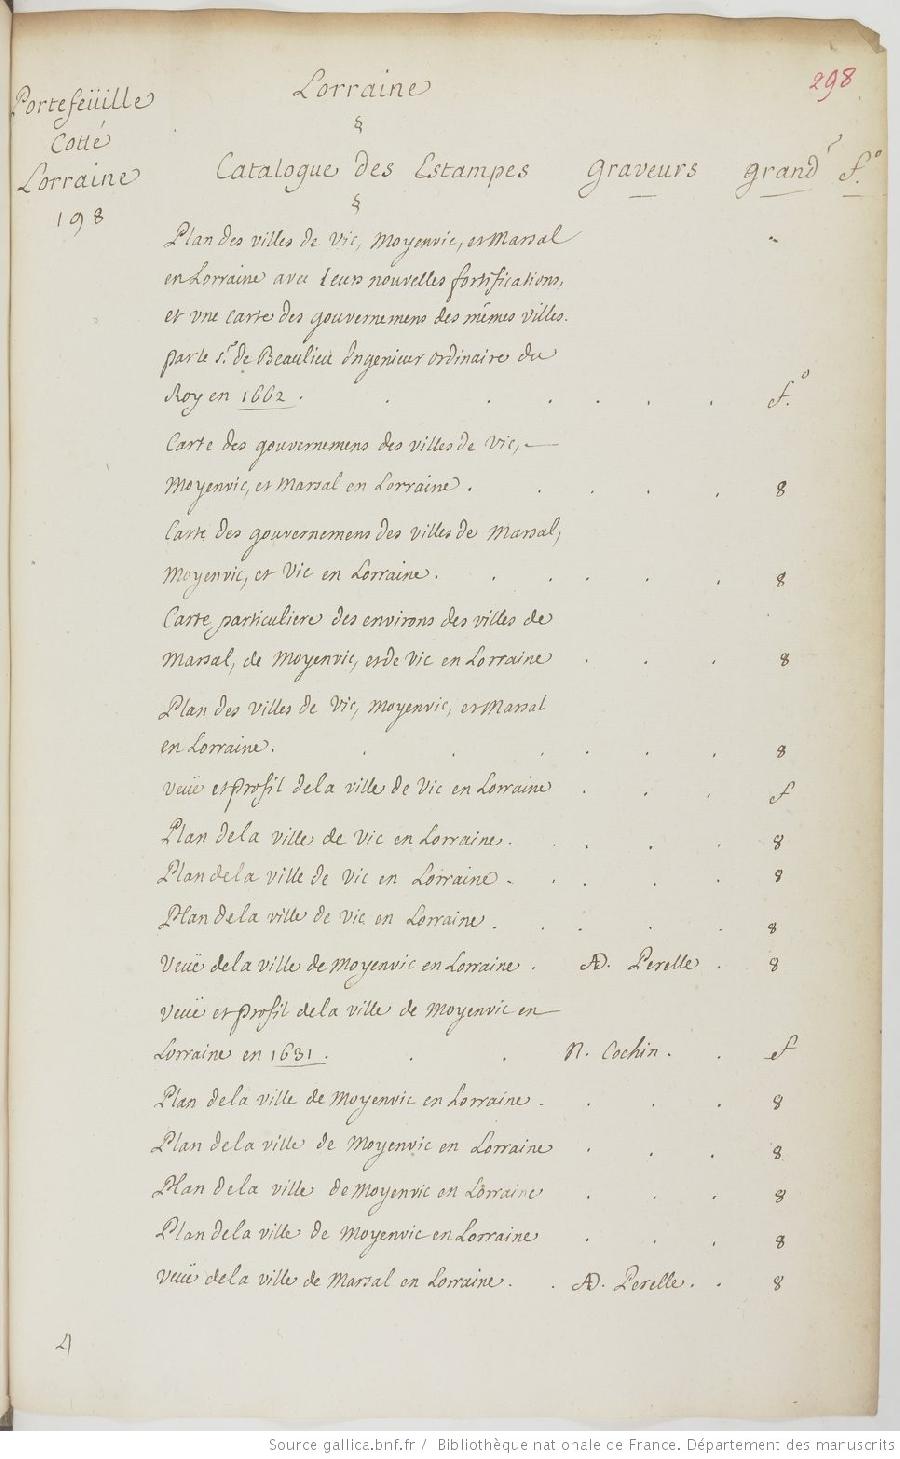 298
Portefeüille
Cotté
Lorraine
198
Lorraine
§
Catalogue Des Estampes Graveurs grand.r f.o
§
Plan des villes de Vic, Moyenvic, et Marsal
en Lorraine avec leurs nouvelles fortifications,
et vne carte des gouvernemens des mêmes villes.
par le s.r de Beaulieu Ingenieur ordinaire du
Roy en 1662 . . . . . . f.o
Carte des gouvernemens des villes de Vic,
Moyenvic, et Marsal en Lorraine . . . . . 8
Carte des gouvernemens des villes de Marsal,
Moyenvic, et Vic en Lorraine . . . . . . 8
Carte particuliere des environs des villes de
Marsal, de Moyenvic, et de Vic en Lorraine . . . 8
Plan des villes de Vic, Moyenvic, et Marsal
en Lorraine . . . . . . . 8
Veuë et profil de la ville de Vic en Lorraine . . . f
Plan de la ville de Vic en Lorraine . . . . . 8
Plan de la ville de Vic en Lorraine . . . . . 8
Plan de la ville de Vic en Lorraine . . . . . 8
Veuë de la ville de Moyenvic en Lorraine . AD. Perelle . 8
Veuë et profil de la ville de Moyenvic en
Lorraine en 1631 . . . N. Cochin . . f
Plan de la ville de Moyenvic en Lorraine . . . . 8
Plan de la ville de Moyenvic en Lorraine . . . 8
Plan de la ville de Moyenvic en Lorraine . . . 8
Plan de la ville de Moyenvic en Lorraine . . . 8
Veuë de la ville de Marsal en Lorraine . . AD. Perelle . . 8
Source gallica.bnf.fr / Bibliothèque nationale de France. Département des manuscrits